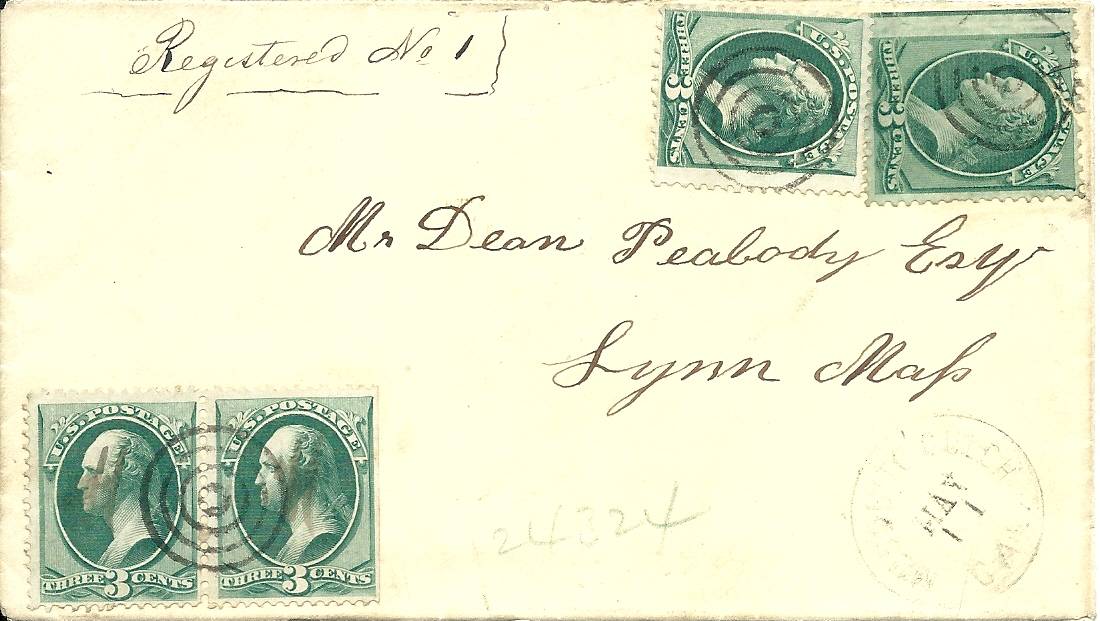 Registered No 1
U.S. POSTAGE
THREE 3 CENTS
U.S. POSTAGE
THREE 3 CENTS
Mr Dean Peabody Esqr
Lynn Maſs
U.S. POSTAGE
THREE 3 CENTS
U.S. POSTAGE
THREE 3 CENTS
24324
GULCH
MAY
11
CAL